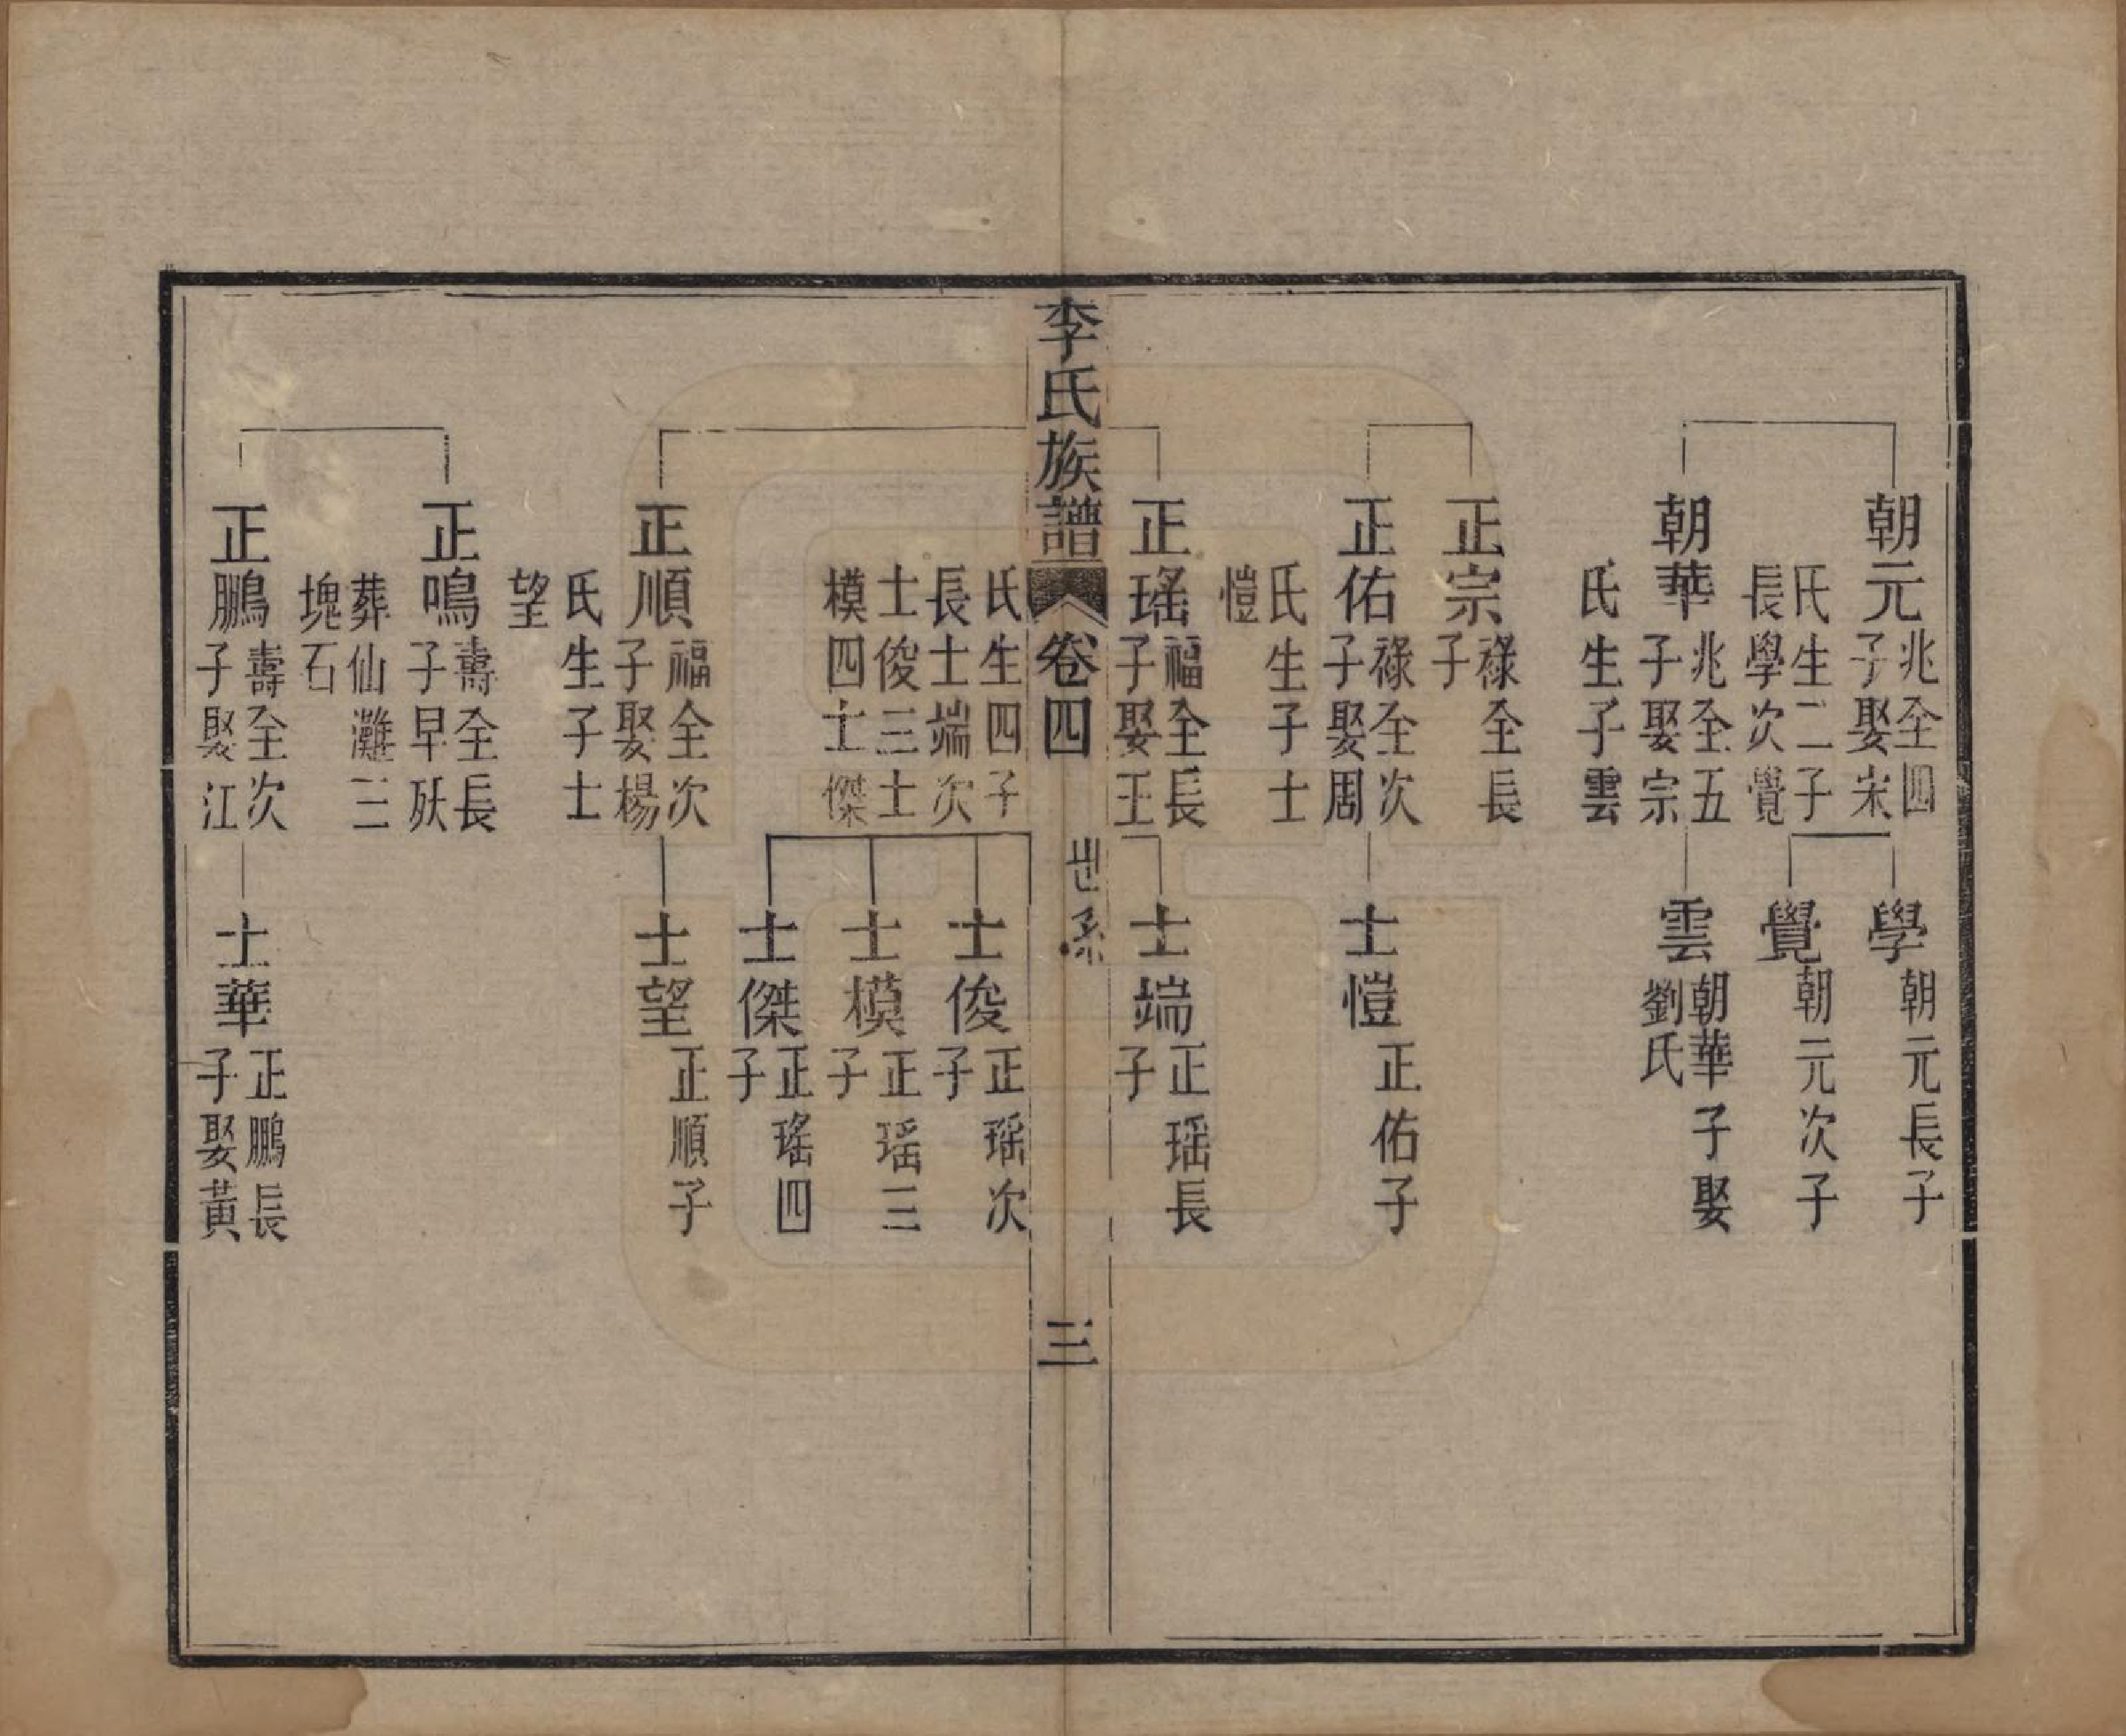 朝元
兆全四
子娶宋
氏生二子
長學次覺
朝華
兆全五
子娶宗
氏生子雲
學
朝元長子
覺
朝元次子
雲
朝華子娶
劉氏
正宗
祿全長
子
正佑
祿全次
子娶周
氏生子士
愷
士愷
正佑子
正瑤
福全長
子娶王
士端
正瑤長
子
李氏族譜 卷四 世系 三
氏生四子
長士端次
士俊三士
模四士傑
士俊
正瑤次
子
士模
正瑤三
子
士傑
正瑤四
子
正順
福全次
子娶楊
氏生子士
望
士望
正順子
正鳴
壽全長
子早殀
葬仙灘三
塊石
正鵬
壽全次
子娶江
士華
正鵬長
子娶黃